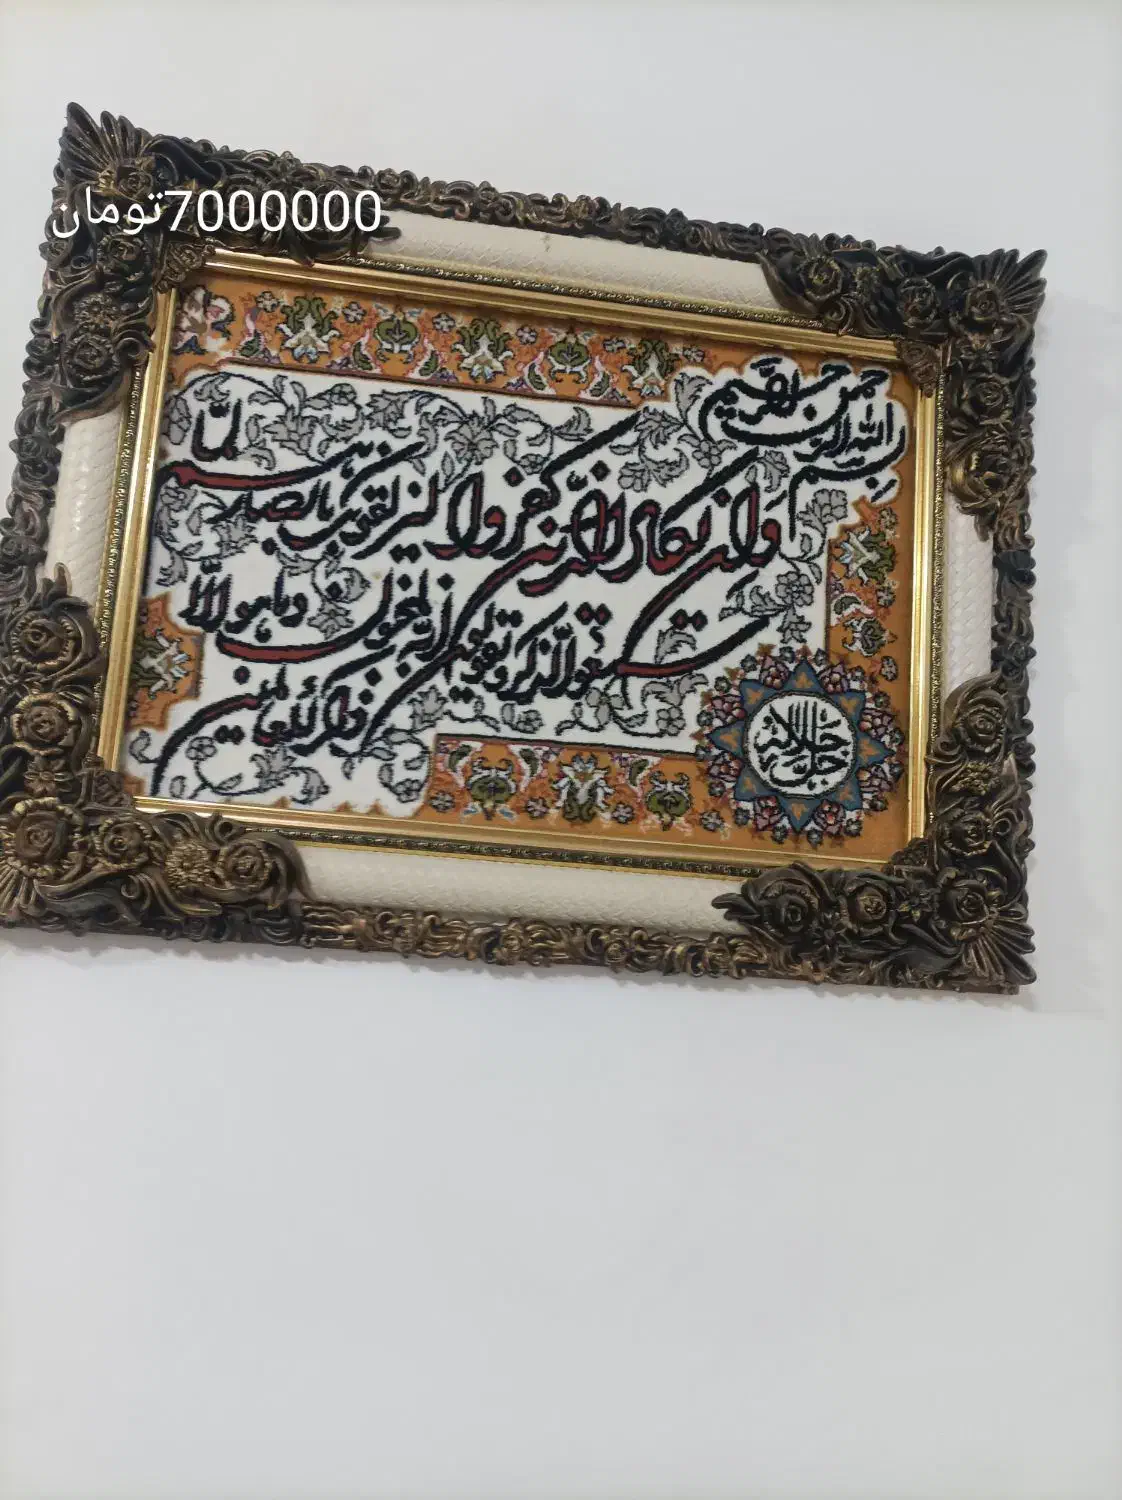 7000000تومان
بسم الله الرحمن الرحیم
وان یکاد الذین کفروا لیزلقونک بابصارهم لما
سمعوا الذکر و یقولون انه لمجنون وما هو الا
ذکر للعالمین
جل جلاله